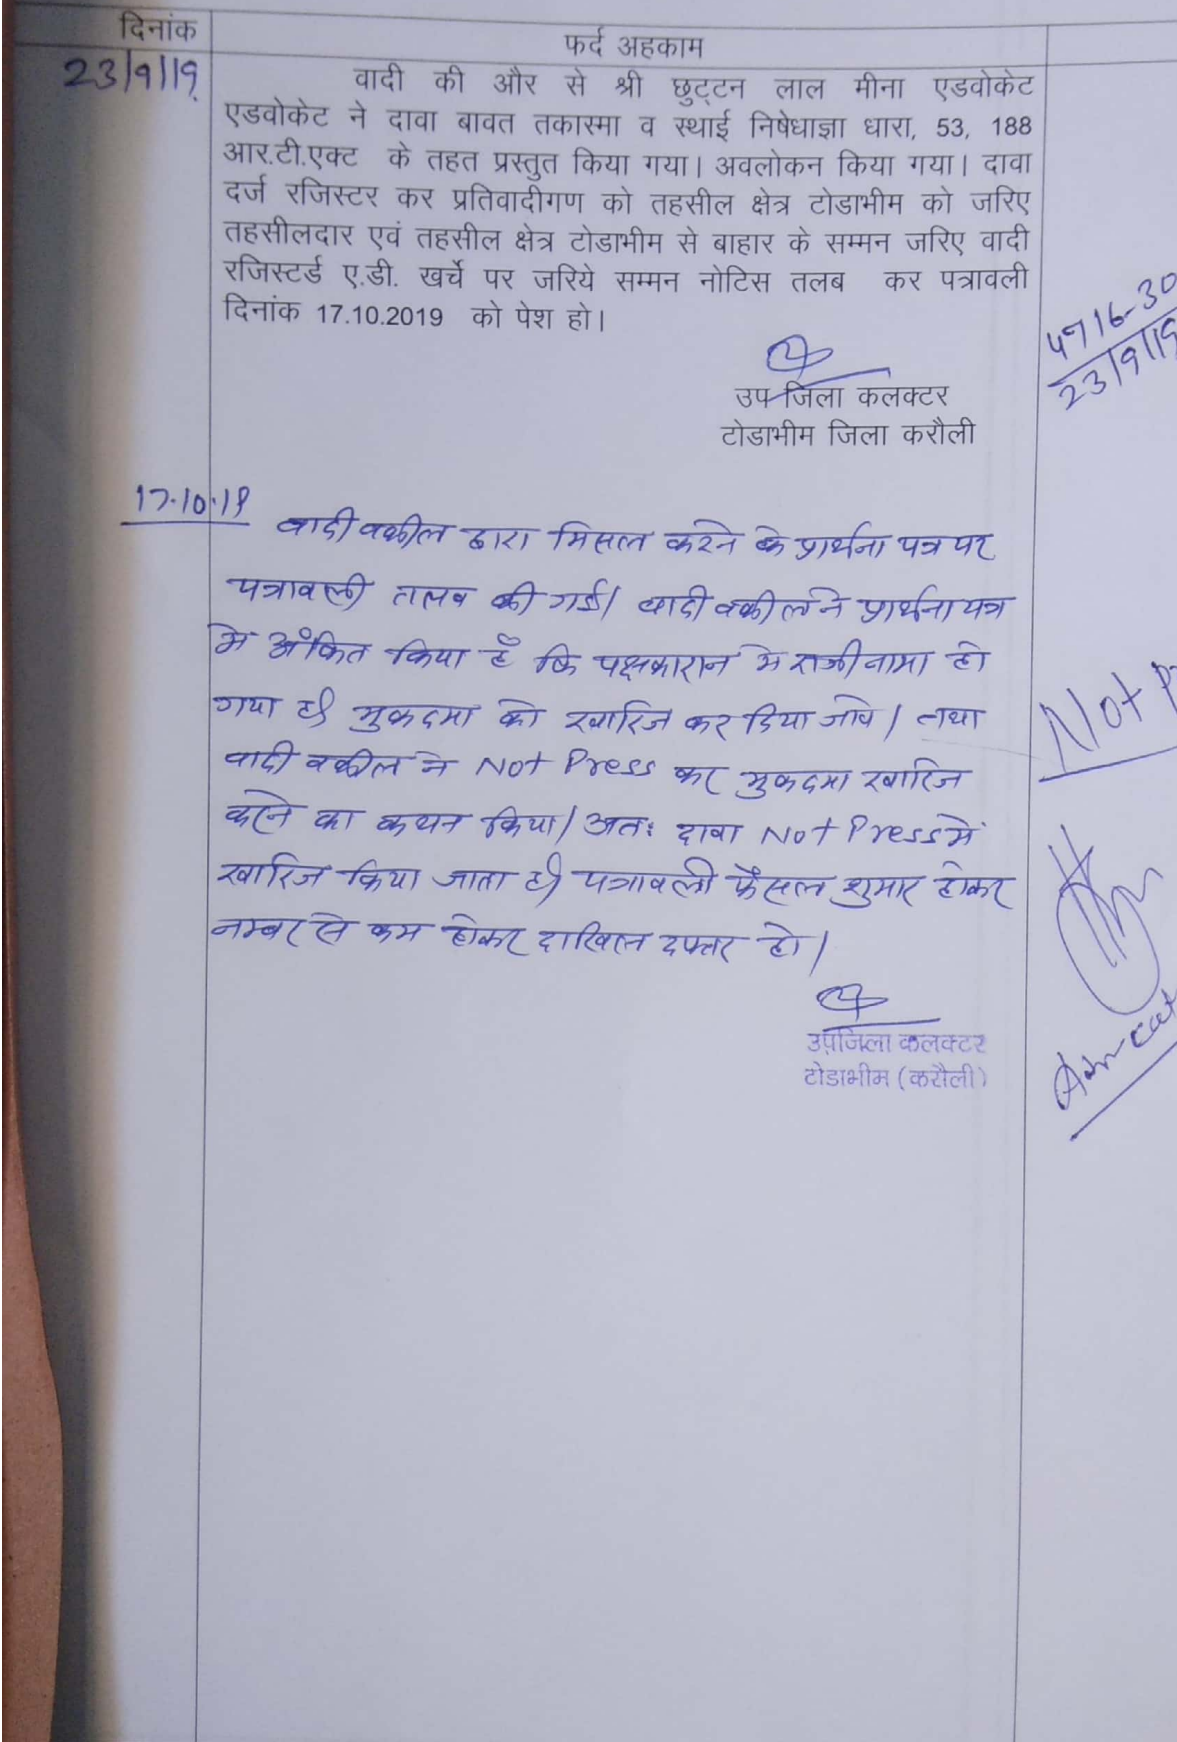 दिनांक
फर्द अहकाम
23/9/19
वादी की और से श्री छुट्टन लाल मीना एडवोकेट
एडवोकेट ने दावा बावत तकास्मा व स्थाई निषेधाज्ञा धारा, 53, 188
आर.टी.एक्ट के तहत प्रस्तुत किया गया। अवलोकन किया गया। दावा
दर्ज रजिस्टर कर प्रतिवादीगण को तहसील क्षेत्र टोडाभीम को जरिए
तहसीलदार एवं तहसील क्षेत्र टोडाभीम से बाहार के सम्मन जरिए वादी
रजिस्टर्ड ए.डी. खर्चे पर जरिये सम्मन नोटिस तलब कर पत्रावली
दिनांक 17.10.2019 को पेश हो।
4716-30
23/9/19
उप जिला कलक्टर
टोडाभीम जिला करौली
17.10.19
वादी वकील द्वारा मिसल करने के प्रार्थना पत्र पर
पत्रावली तलब की गई। वादी वकील ने प्रार्थना पत्र
मे अंकित किया है कि पक्षकारान मे राजीनामा हो
गया है। मुकदमा को खारिज कर दिया जावे। तथा
वादी वकील ने Not Press कर मुकदमा खारिज
करने का कथन किया। अतः दावा Not Press में
खारिज किया जाता है। पत्रावली फैसल शुमार होकर
नम्बर से कम होकर दाखिल दफ्तर हो।
Not P
उपजिला कलक्टर
टोडाभीम (करौली)